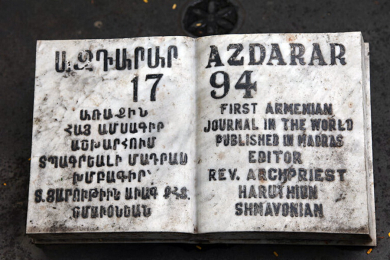 ԱԶԴԱՐԱՐ
17
ԱՌԱՋԻՆ
ՀԱՅ ԱՄՍԱԳԻՐ
ԱՇԽԱՐՀՈՒՄ
ՏՊԱԳՐԵԱԼ Ի ՄԱԴՐԱՍ
ԽՄԲԱԳԻՐ՝
Տ.ՅԱՐՈՒԹԻՒՆ ԱՒԱԳ ՔՀՆ.
ՇՄԱՒՈՆԵԱՆ
AZDARAR
94
FIRST ARMENIAN
JOURNAL IN THE WORLD
PUBLISHED IN MADRAS
EDITOR
REV. ARCHPRIEST
HARUTHIUN
SHMAVONIAN